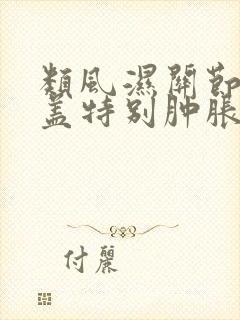 類風濕關節
蓋特别肿脹
付麗